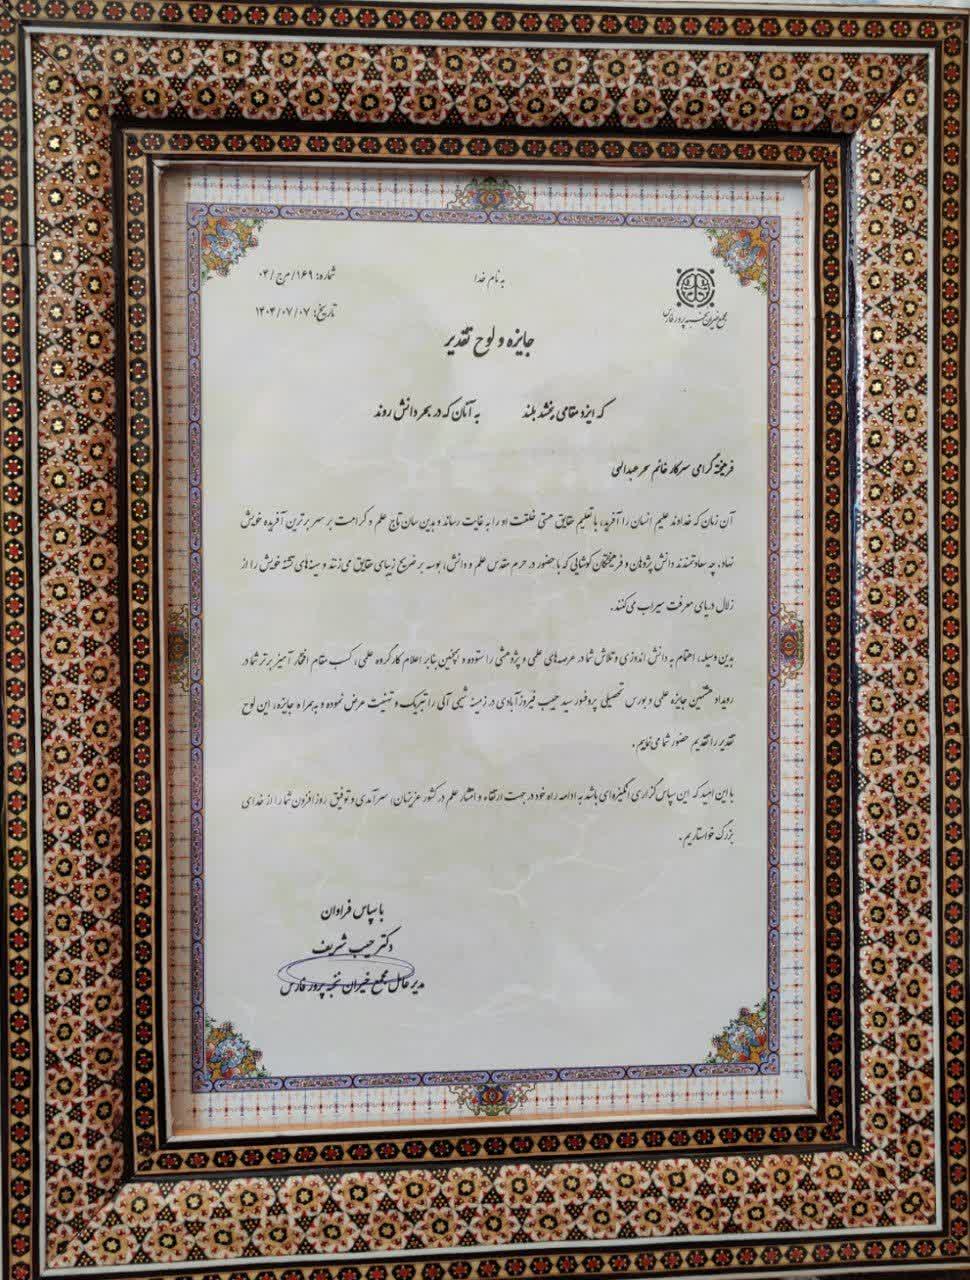 به نام خدا
شماره: ۱۶۹/م ج/۰۴
تاریخ: ۱۴۰۴/۰۷/۰۷
مجمع خیران نخبه پرور فارس
جایزه و لوح تقدیر
که ایزد مقامی ببخشد بلند به آنان که در بحر دانش روند
فرهیخته گرامی سرکار خانم سحر عبدالهی
آن زمان که خداوند علیم انسان را آفرید، با تعلیم حقایق هستی خلقت او را به غایت رساند و بدین سان تاج علم و کرامت بر سر برترین آفریده خویش
نهاد، چه سعادتمندند دانش پژوهان و فرهیختگان کوشایی که با حضور در حرم مقدس علم و دانش، بوسه بر ضریح زیبای حقایق می‌زنند و سینه‌های تشنه خویش را از
زلال دریای معرفت سیراب می‌کنند.
بدین وسیله، اهتمام به دانش اندوزی و تلاش شما در عرصه‌های علمی و پژوهشی را ستوده و همچنین بنابر اعلام کارگروه علمی، کسب مقام افتخار آمیز برتر شما در
رویداد هشتمین جایزه علمی و بورس تحصیلی پروفسور سید حبیب فیروزآبادی در زمینه شیمی آلی را تبریک و تهنیت عرض نموده و به همراه جایزه، این لوح
تقدیر را تقدیم حضور شما می‌نماییم.
با این امید که این سپاس گزاری انگیزه‌ای باشد به ادامه راه خود در جهت ارتقاء و انتشار علم در کشور عزیزمان، سرآمدی و توفیق روزافزون شما را از خدای
بزرگ خواستاریم.
با سپاس فراوان
دکتر حبیب شریف
مدیر عامل مجمع خیران نخبه پرور فارس